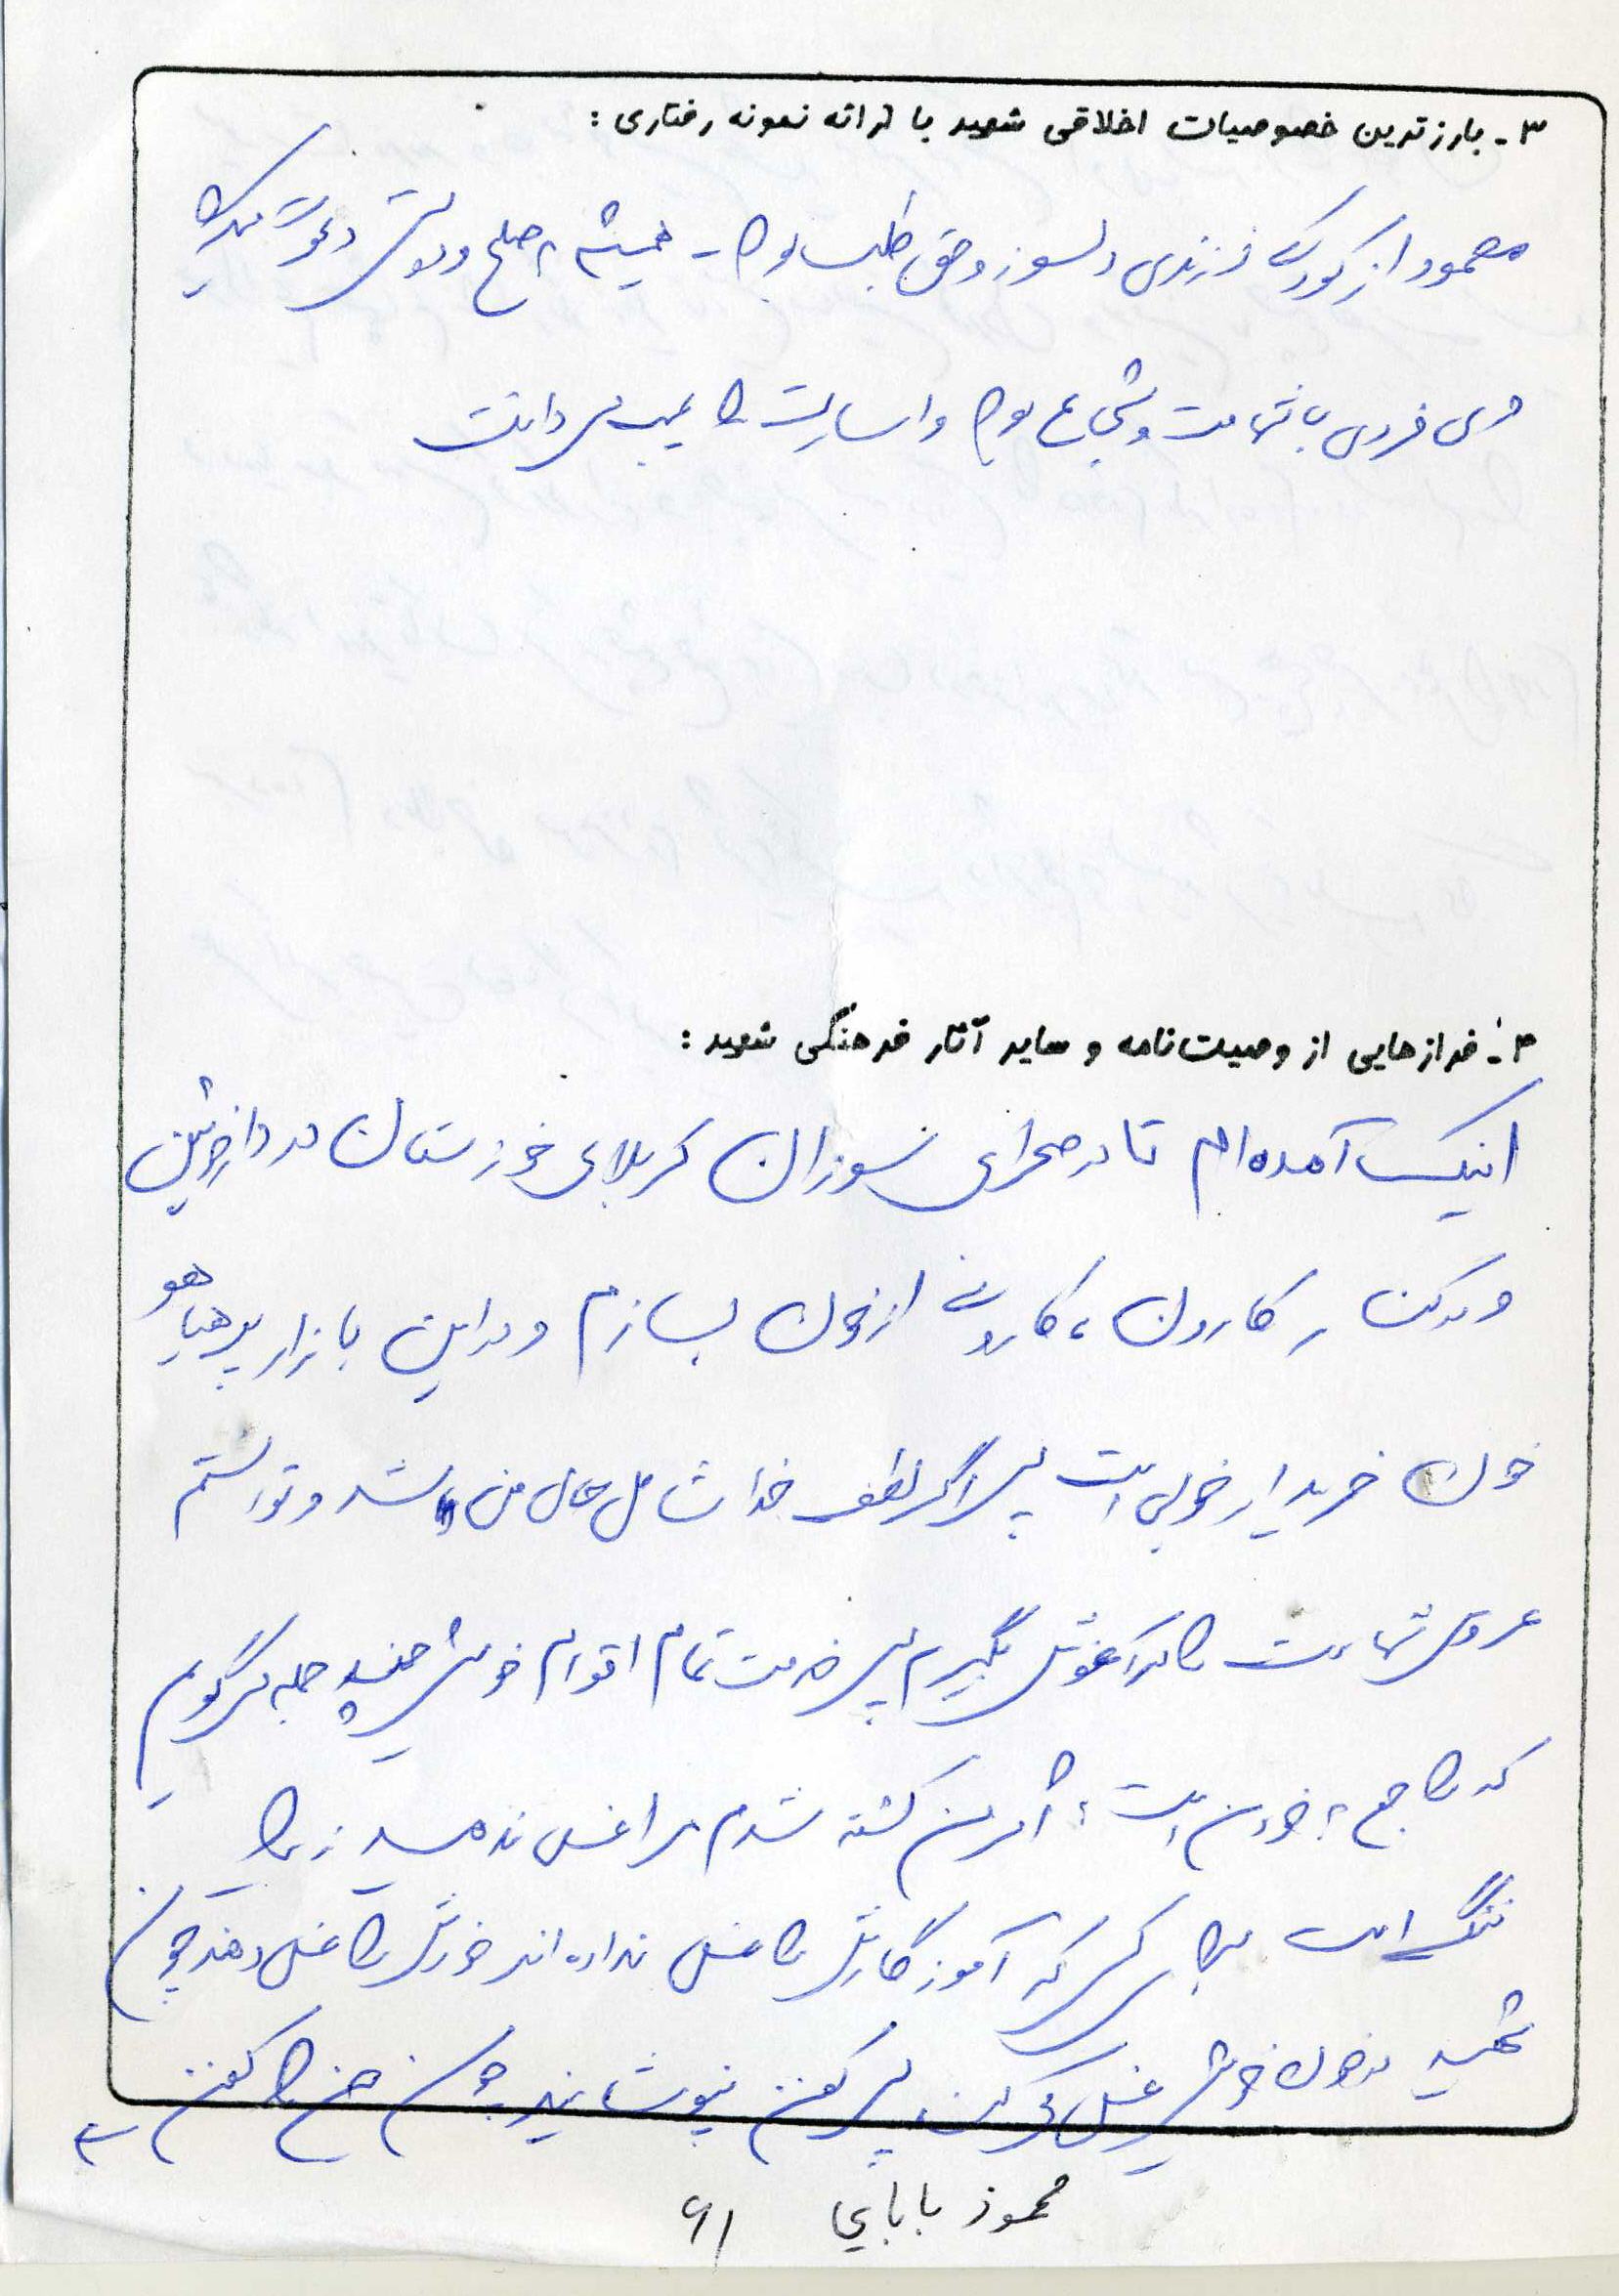 ۳- بارزترین خصوصیات اخلاقی شهید با ارائه نمونه رفتاری :
محمود از کودکی فرزندی دلسوز و حق طلب بود - همیشه به صلح و دوستی دعوت میکرد
وی فردی با شهامت و شجاع بود و اسارت را عیب می دانست
۴- فرازهایی از وصیت‌نامه و سایر آثار فرهنگی شهید :
اینک آمده ام تا در صحرای سوزان کربلای خوزستان در دارخوئین
و در کنار کارون ، کارونی از خون بسازم و در این بازار پر هیاهو
خون خریدار خوبی است پس اگر لطف خدا شامل حال من باشد و توانستم
عروس شهادت را در آغوش بگیرم پس خدمت تمام اقوام خویش چند جمله می گویم
که راجع به خود من است ؛ اگر من کشته شدم مرا غسل ندهید زیرا
ننگ است برای کسی که آموزگارش را غسل نداده اند خودش را غسل دهند چون
شهید در خون خویش غسل کردن پس کفن نپوشانید چون من را کفن
محمود بابایی ۶۱